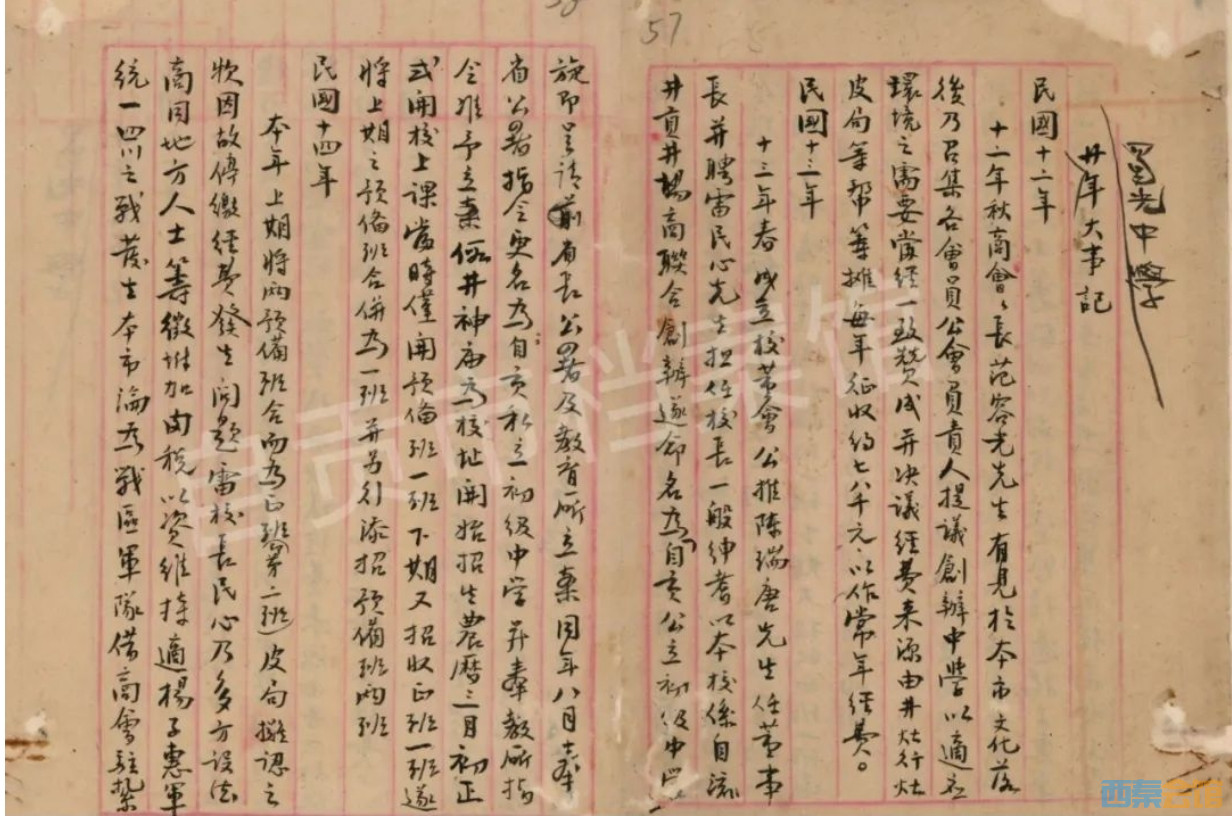 57
蜀光中學
廿年大事記
民國十二年
十二年秋商會々長范容光先生有見於本市文化落
後乃召集各會員公會負責人提議創辦中學以適应
環境之需要當經一致贊成并决議經費来源由井灶行灶
皮局等帮籌攤每年征收約七八千元以作常年經費。
民國十三年
十三年春成立校董會公推陳瑞唐先生任董事
長并聘雷民心先生担任校長一般紳耆以本校係自流
井貢井塲商聯合創辦遂命名為自貢公立初級中学
旋即呈請前省長公署及教育所立案同年八月奉
省公署指令更名為自貢私立初級中学并奉教所指
令准予立案借井神庙為校址開始招生農曆三月初正
式開校上課當時僅開預備班一班下期又招收正班一班遂
將上期之預备班合併為一班并另行添招預備班兩班
民國十四年
本年上期将两預備班合而為正班第二班皮局攤認之
欵因故停繳經費發生问題雷校長民心乃多方設法
商同地方人士籌徵附加肉税以资維持適楊子惠軍
統一四川之戰發生本市淪為戰區軍隊借商會駐紮
自贡市档案馆
西秦会馆